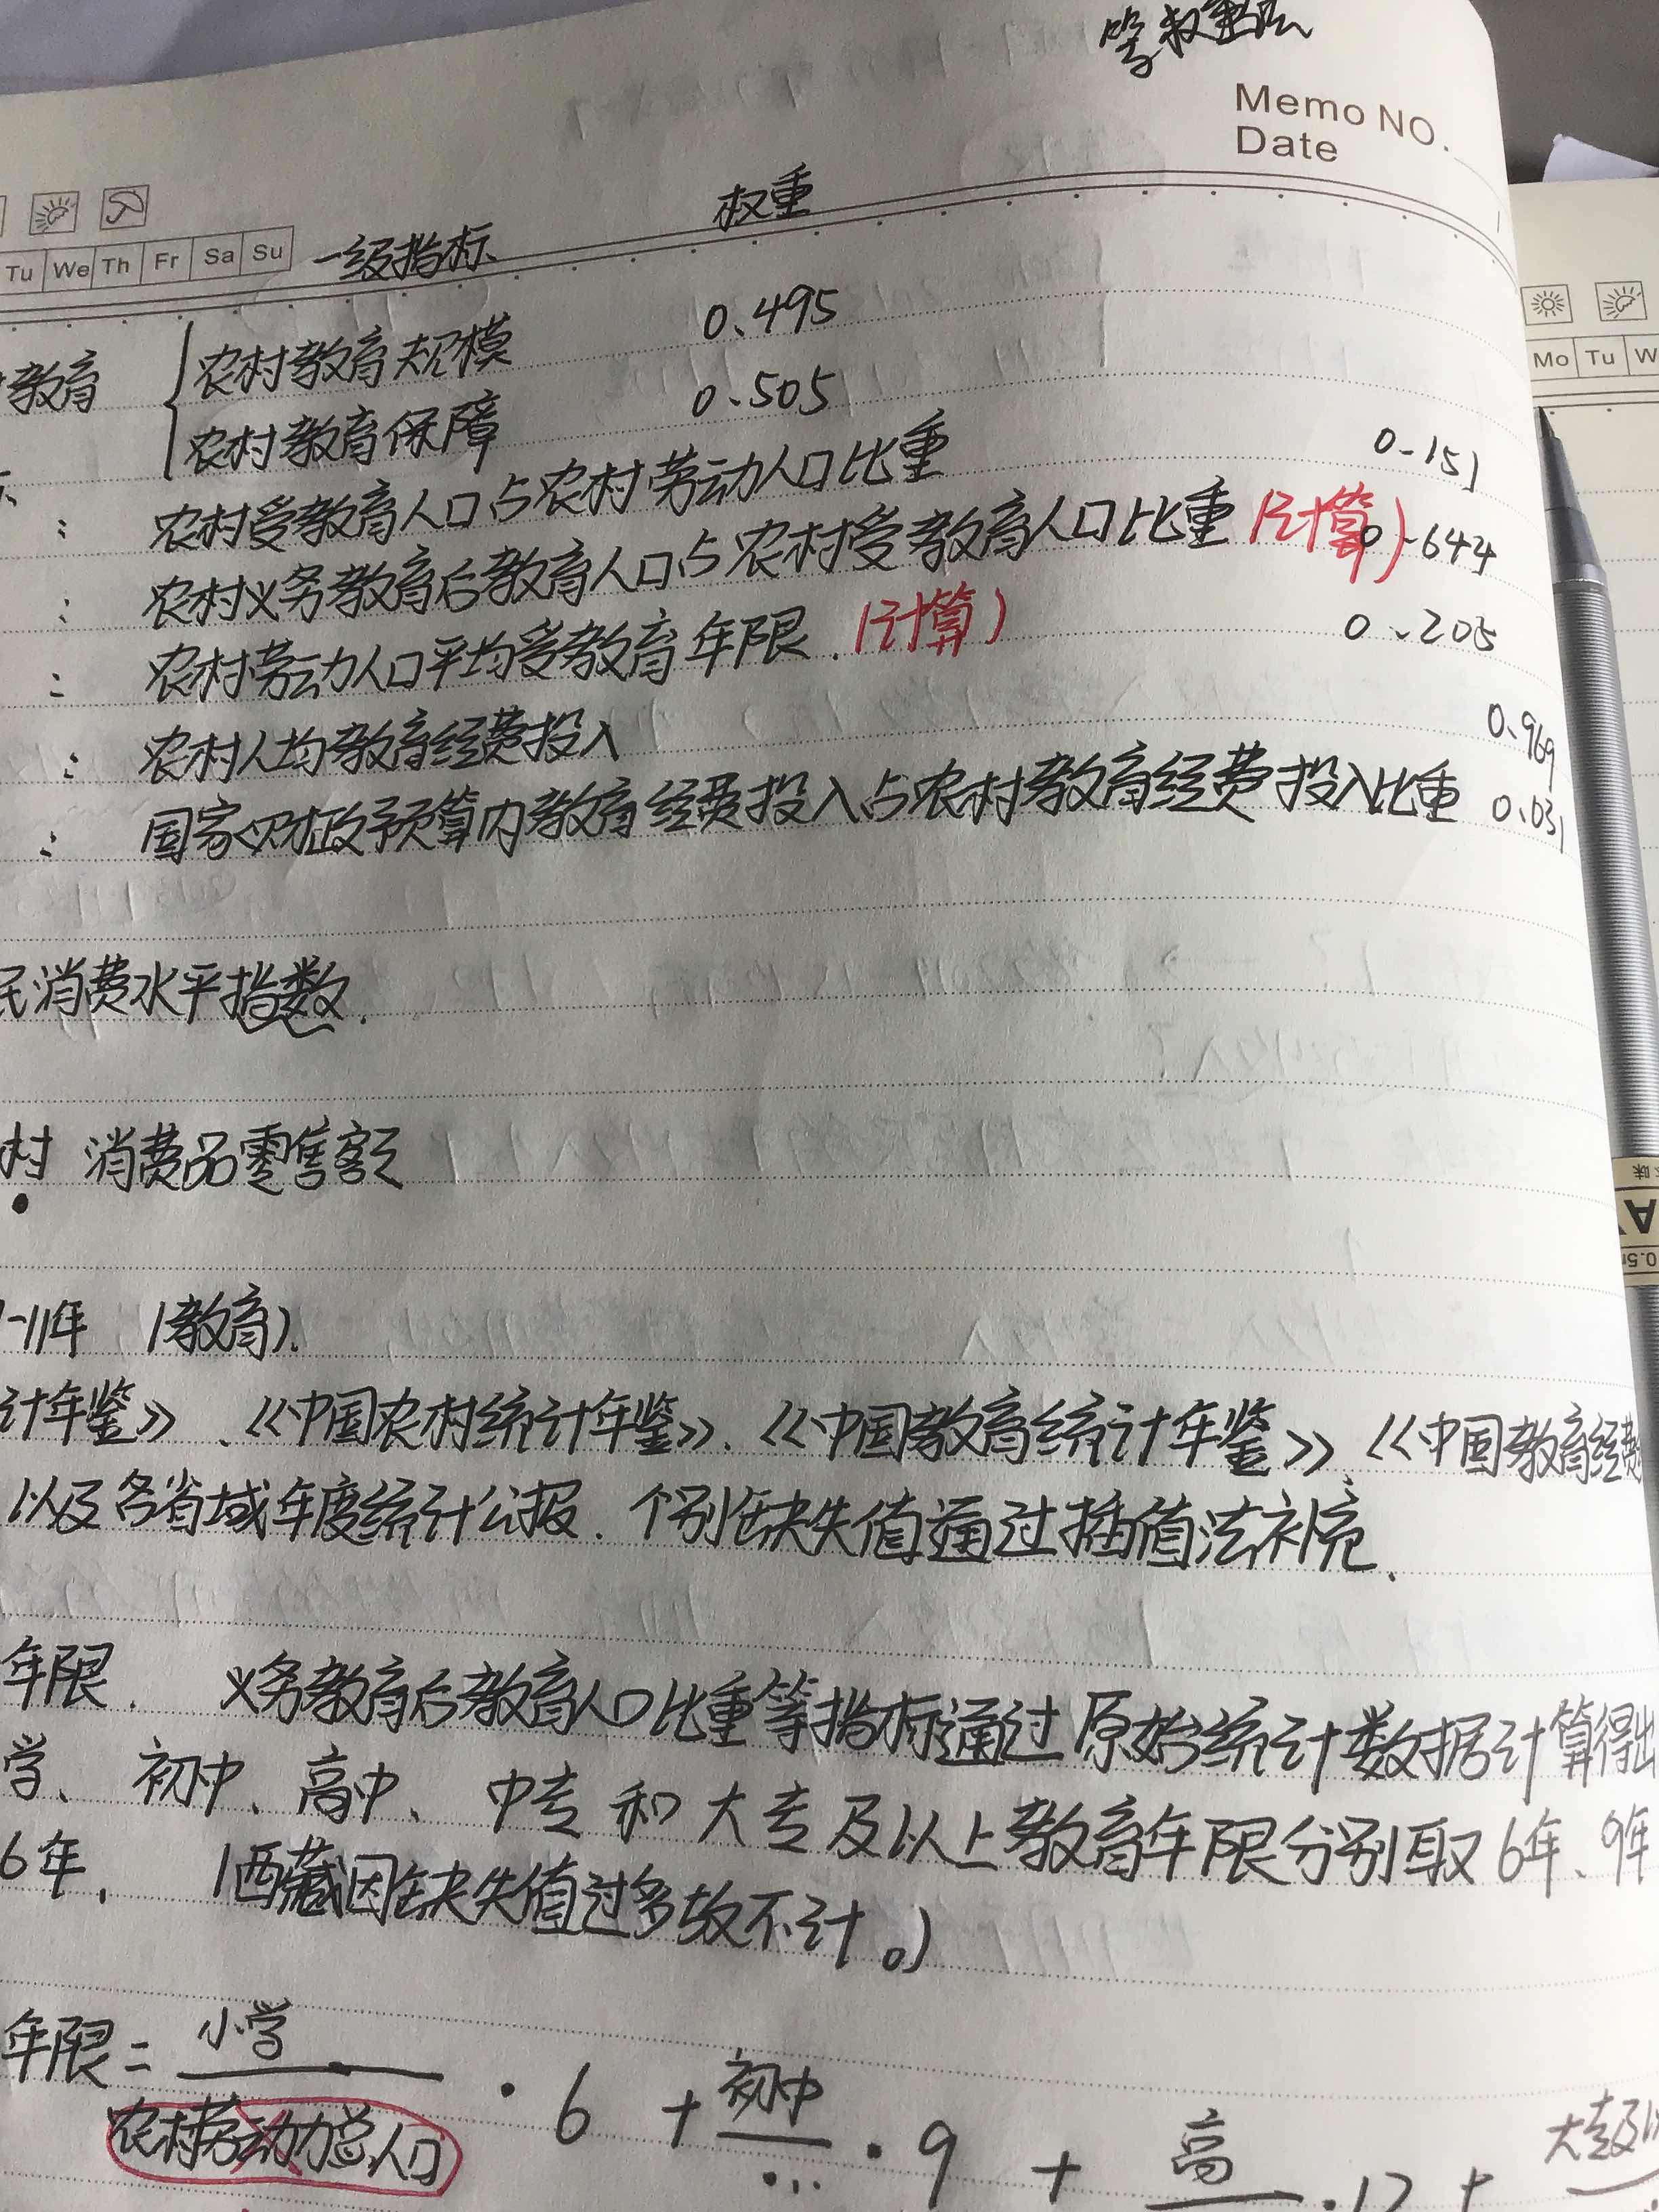 等权重法
Memo NO.
Date
Tu We Th Fr Sa Su 一级指标 权重
教育 农村教育规模 0.495
农村教育保障 0.505
: 农村受教育人口占农村劳动人口比重 0.151
: 农村义务教育后教育人口占农村受教育人口比重(计算) 0.644
: 农村劳动人口平均受教育年限.(计算) 0.205
: 农村人均教育经费投入 0.969
: 国家财政预算内教育经费投入占农村教育经费投入比重 0.031
民消费水平指数.
村 消费品零售额
-11年 (教育).
计年鉴》、《中国农村统计年鉴》、《中国教育统计年鉴》、《中国教育经费
以及各省域年度统计公报. 个别缺失值通过插值法补充.
年限. 义务教育后教育人口比重等指标通过原始统计数据计算得出
学、初中、高中、中专和大专及以上教育年限分别取6年、9年
6年. (西藏因缺失值过多故不计。)
年限= 小学 · 6 + 初中 · 9 + 高 · 12 + 大专及以
农村劳动力总人口 ...
Mo Tu W
0.5